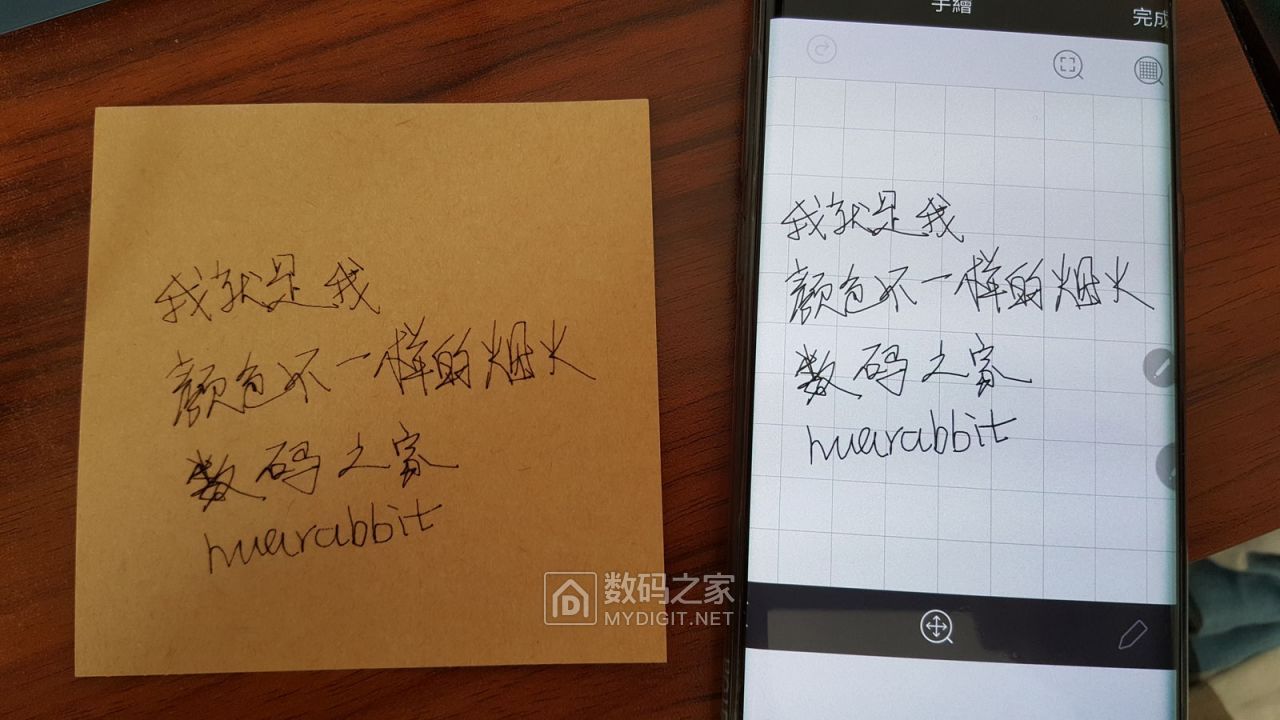 我就是我
颜色不一样的烟火
数码之家
huarabbit
手繪
完成
我就是我
颜色不一样的烟火
数码之家
huarabbit
数码之家
MYDIGIT.NET